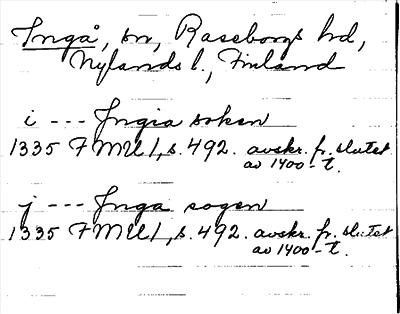 Ingå, sn, Raseborgs hd,
Nylands l., Finland
i --- Jngia soken
1335 FMU 1, s. 492. avskr. fr. slutet
av 1400-t.
j --- Jnga sogen
1335 FMU 1, s. 492. avskr. fr. slutet
av 1400-t.